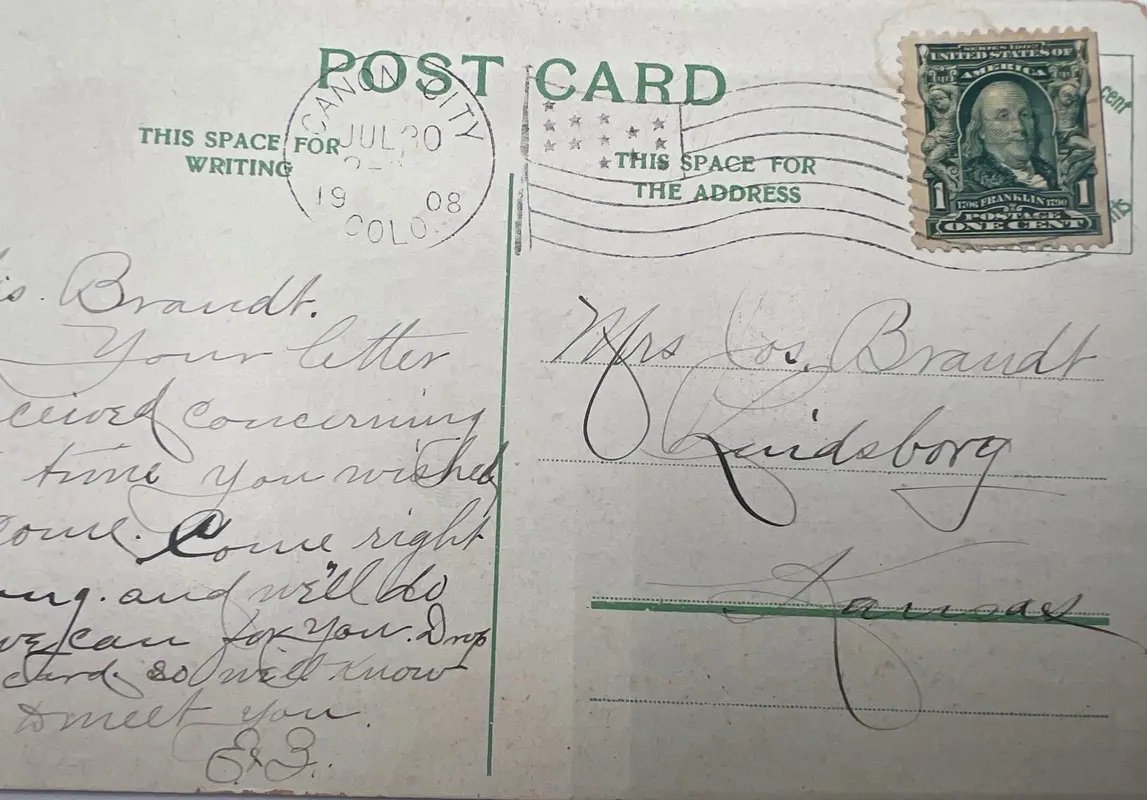 POST CARD
THIS SPACE FOR
WRITING
THIS SPACE FOR
THE ADDRESS
CANON CITY
JUL 30
19 08
COLO.
SERIES 1902
UNITED STATES OF
AMERICA
1 1706 FRANKLIN 1790 1
POSTAGE
ONE CENT
cent
is. Brandt.
Your letter
ceived concerning
time you wished
come. Come right
ung. and we'll do
we can for you. Drop
card. so will know
to meet you.
Mrs Jos. Brandt
Lindsborg
Kansas